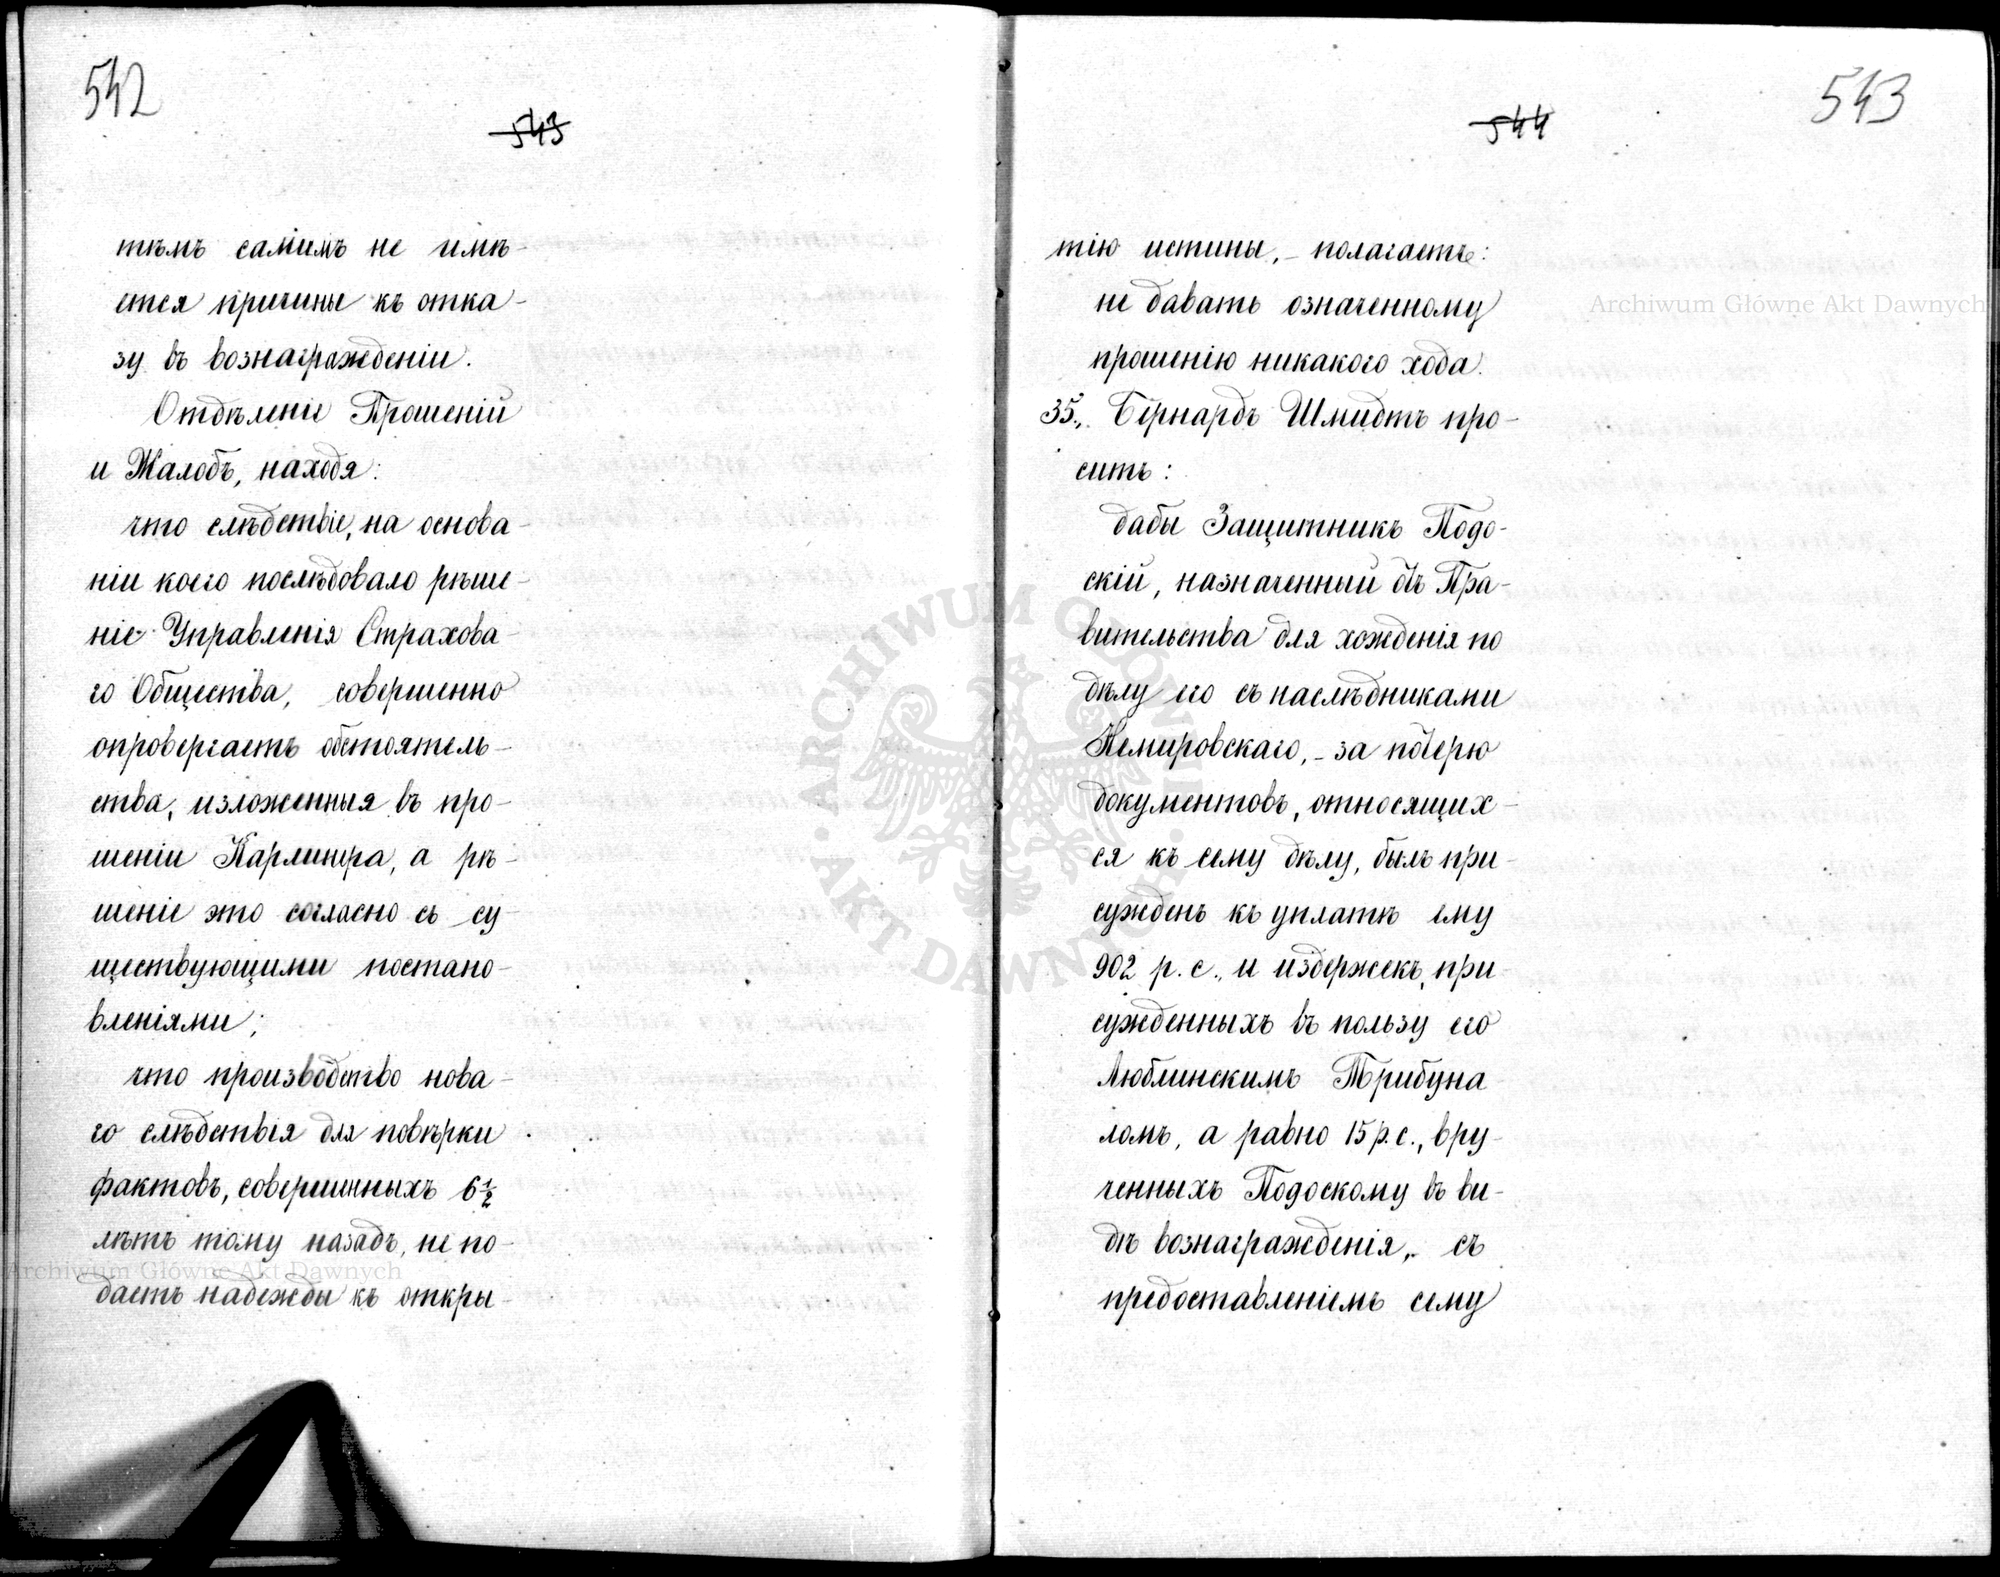 542
543
тѣмъ самимъ не имѣ-
ется причины къ отка-
зу въ вознагражденіи.
Отдѣленіе Прошеній
и Жалобъ, находя:
что слѣдствіе, на основа-
ніи коего послѣдовало рѣше-
ніе Управленія Страхова-
го Общества, совершенно
опровергаетъ обстоятель-
ства, изложенныя въ про-
шеніи Карлинера, а рѣ-
шеніе это согласно съ су-
ществующими постано-
вленіями;
что производство нова-
го слѣдствія для повѣрки
фактовъ, совершенныхъ 6½
лѣтъ тому назадъ, не по-
даетъ надежды къ откры-
543
544
тію истины, - полагаетъ:
не давать означенному
прошенію никакого хода.
35., Бернардъ Шмидтъ про-
ситъ:
дабы Защитникъ Подо-
скій, назначенный отъ Пра-
вительства для хожденія по
дѣлу его съ наслѣдниками
Немировскаго, - за потерю
документовъ, относящих-
ся къ сему дѣлу, былъ при-
сужденъ къ уплатѣ ему
902 р. с., и издержекъ, при-
сужденныхъ въ пользу его
Люблинскимъ Трибуна-
ломъ, а равно 15 р. с., вру-
ченныхъ Подоскому въ ви-
дѣ вознагражденія, - съ
предоставленіемъ сему
Archiwum Główne Akt Dawnych
Archiwum Główne Akt Dawnych
ARCHIWUM GŁÓWNE AKT DAWNYCH